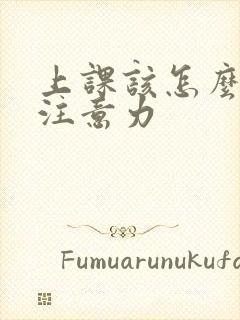 上課該怎麼
注意力
Fumuarunukufa